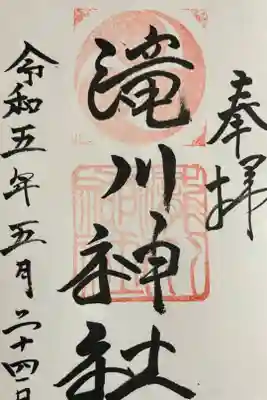 奉拝
滝川神社
令和五年五月二十四日